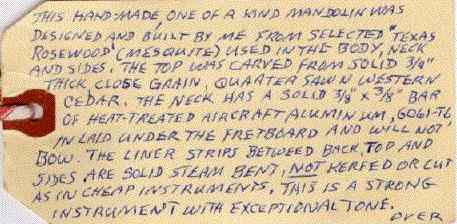 THIS HANDMADE ONE OF A KIND MANDOLIN WAS
DESIGNED AND BUILT BY ME FROM SELECTED "TEXAS
ROSEWOOD" (MESQUITE) USED IN THE BODY, NECK
AND SIDES. THE TOP WAS CARVED FROM SOLID 3/4"
THICK CLOSE GRAIN, QUARTER SAWN WESTERN
CEDAR. THE NECK HAS A SOLID 3/8" X 3/8" BAR
OF HEAT-TREATED AIRCRAFT ALUMINUM, 6061-T6
IN LAID UNDER THE FRETBOARD AND WILL NOT
BOW. THE LINER STRIPS BETWEED BACK, TOP AND
SIDES ARE SOLID STEAM BENT, NOT KERFED OR CUT
AS IN CHEAP INSTRUMENTS. THIS IS A STRONG
INSTRUMENT WITH EXCEPTIONAL TONE.
OVER